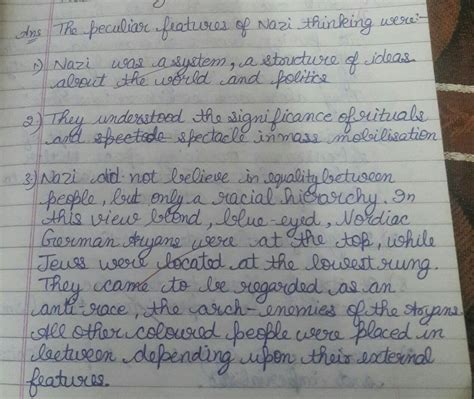 Ans The peculiar features of Nazi thinking were:-
1) Nazi was a system, a structure of ideas
about the world and politics
2) They understood the significance of rituals
and spectacle in mass mobilisation
3) Nazi did not believe in equality between
people, but only a racial hierarchy. In
this view blond, blue-eyed, Nordiac
German Aryans were at the top, while
Jews were located at the lowest rung.
They came to be regarded as an
anti-race, the arch-enemies of the Aryans
All other coloured people were placed in
between depending upon their external
features.